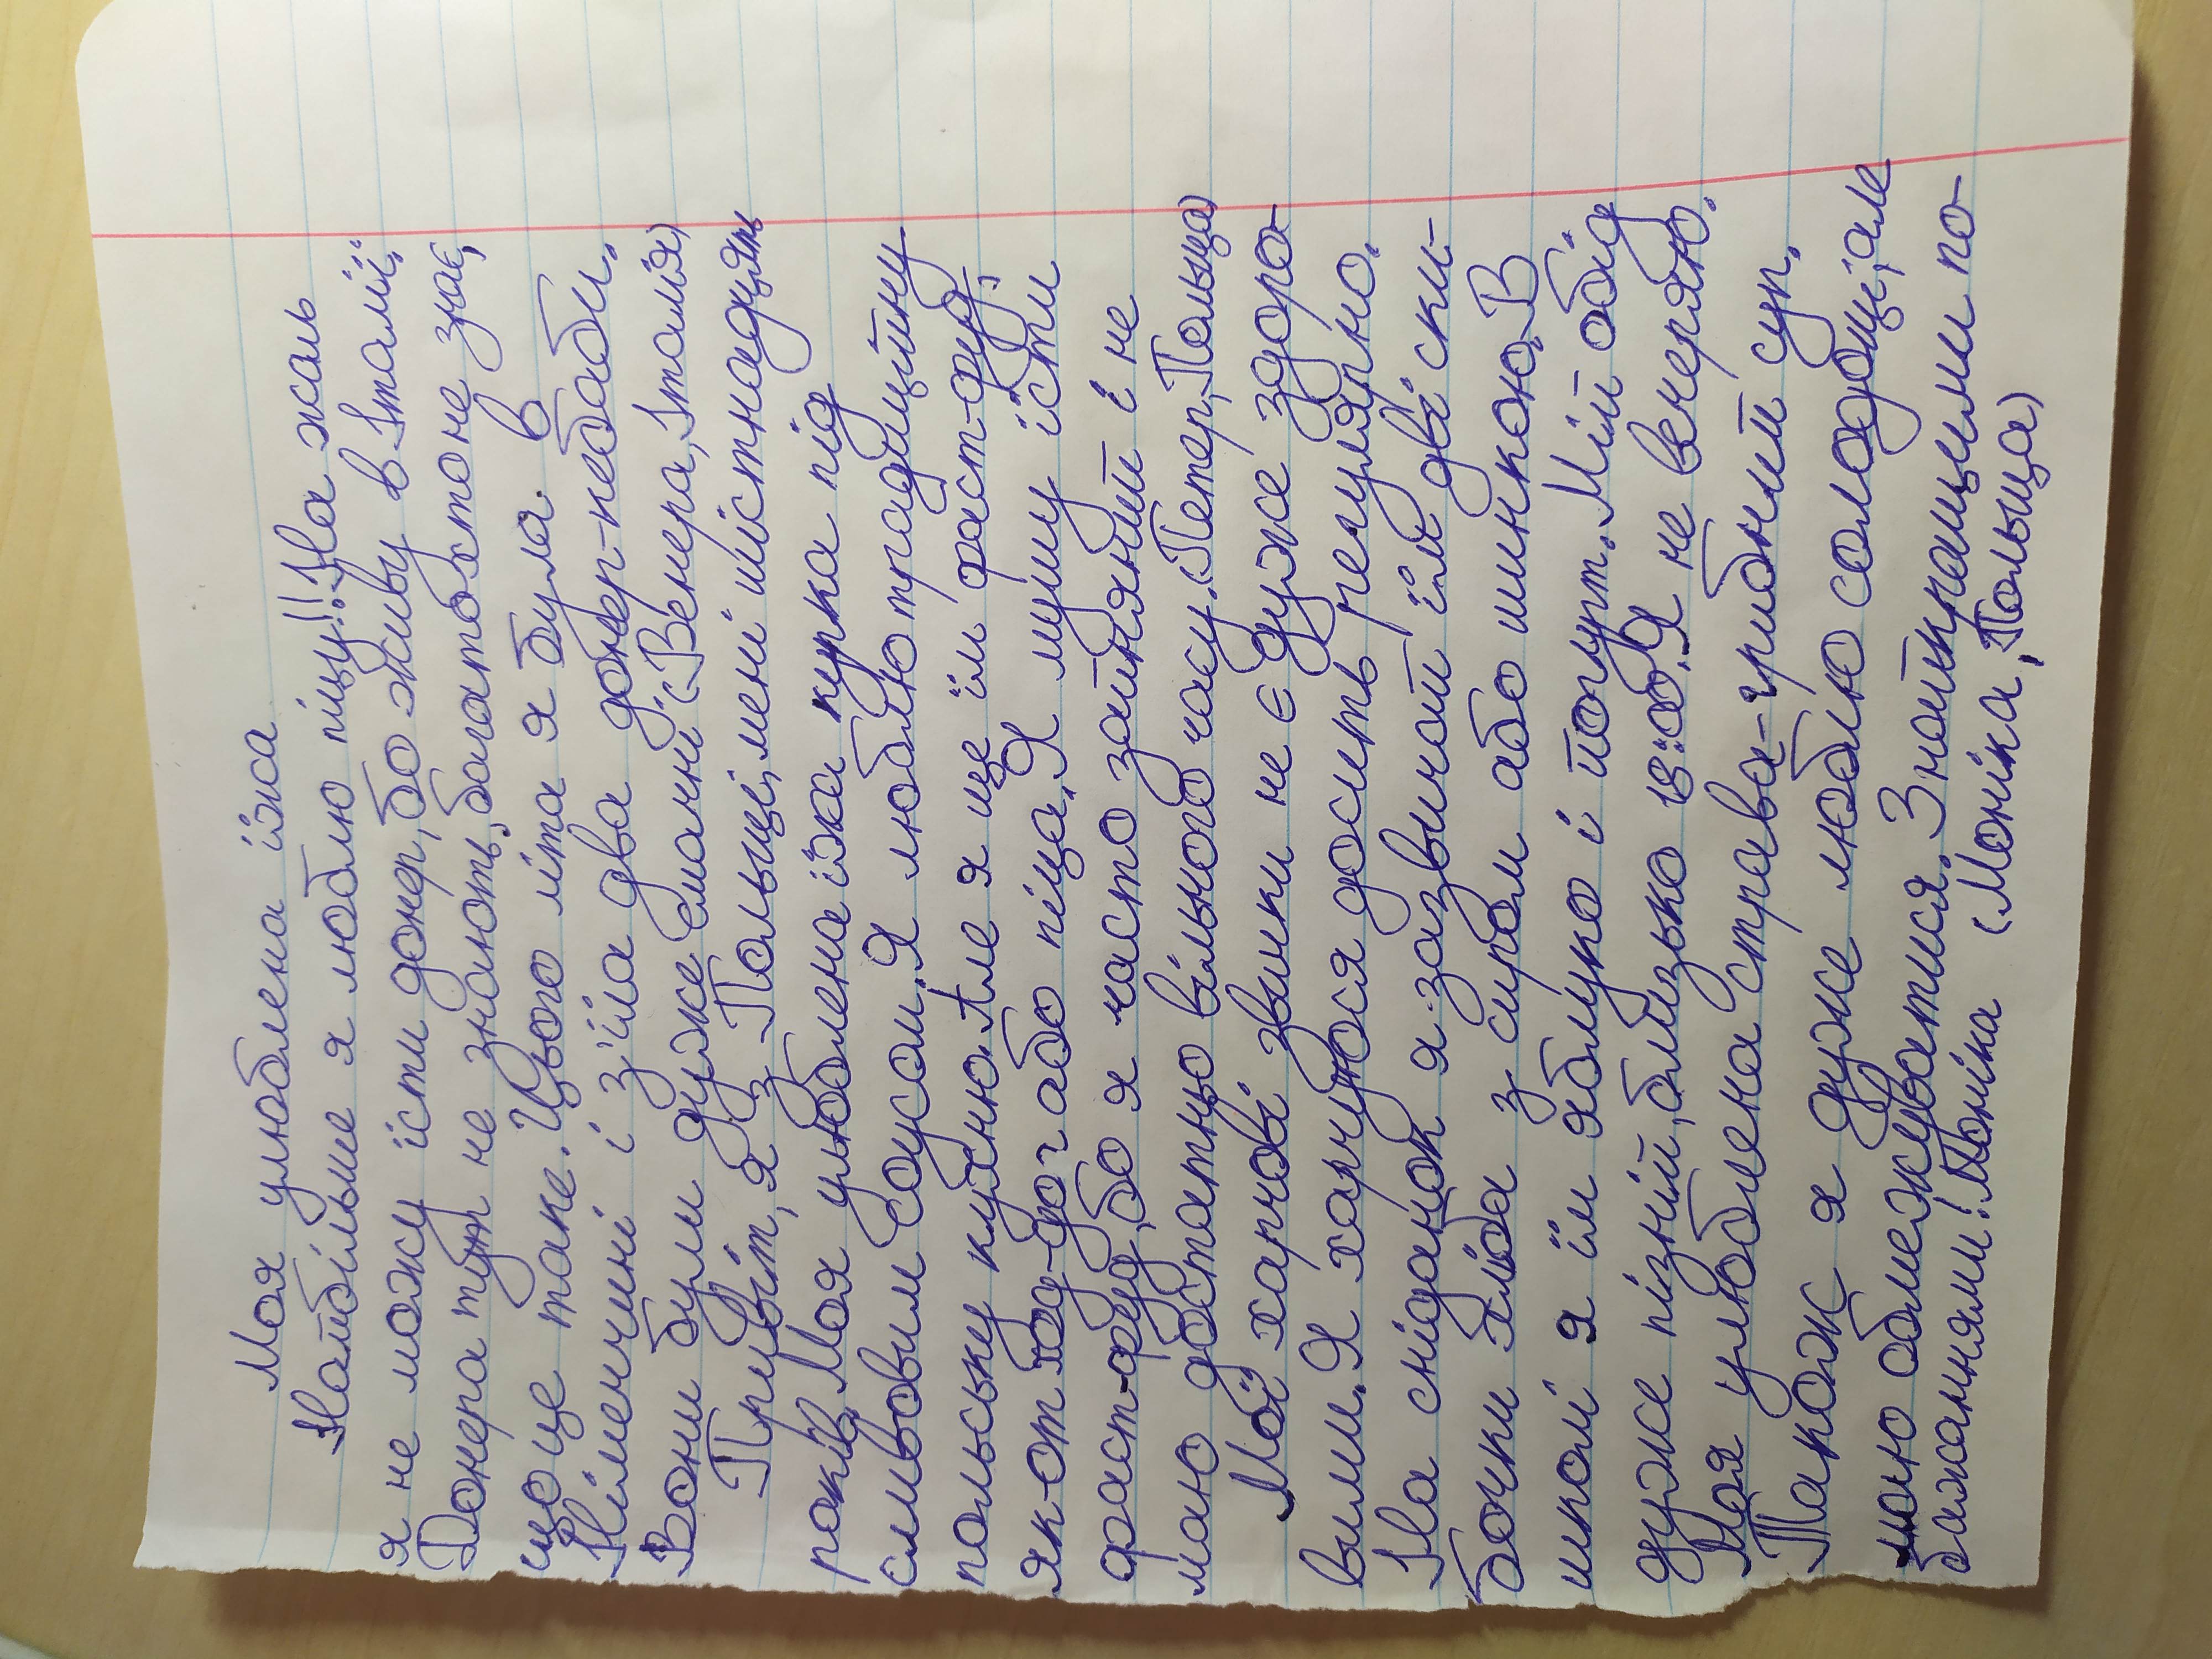 Моя улюблена їжа
Найбільше я люблю піцу!! На жаль
я не можу їсти донер, бо живу в Італії.
Донера тут не знають, багато хто не знає,
що це таке. Цього літа я була в
Німеччині і з'їла два донер-кебаби.
Вони були дуже смачні. (Венера, Італія)
Привіт, я з Польщі, мені шістнадцять
років. Моя улюблена їжа курка під
сливовим соусом. Я люблю традиційну
польську кухню. Але я ще їм фаст-фуд,
як-от год-дог або піца. Я мушу їсти
фаст-фуд, бо я часто зайнятий і не
маю достатньо вільного часу. (Петер, Польща)
Мої харчові звички не є дуже здоро-
вими. Я харчуюся досить регулярно.
На сніданок я зазвичай їм дві ски-
бочки хліба з сиром або шинкою. В
школі я їм яблуко і йогурт. Мій обід
дуже пізній, близько 18:00. Я не вечеряю.
Моя улюблена страва-грибний суп.
Також я дуже люблю солодощі, але
маю обмежуватися. З найкращими по-
бажаннями! Моніка (Моніка, Польща)